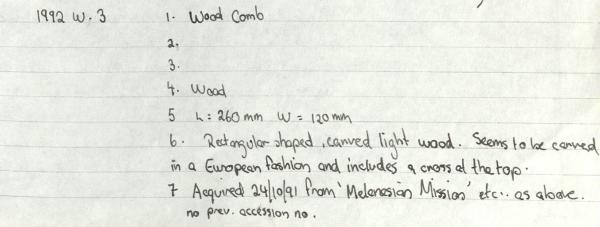 1992 W. 3 1. Wood Comb
2.
3.
4. Wood
5 L = 260 mm W = 120 mm
6. Rectangular shaped, carved light wood. Seems to be carved
in a European fashion and includes a cross at the top.
7 Acquired 24/10/91 from 'Melanesian Mission' etc.. as above.
no prev. accession no.